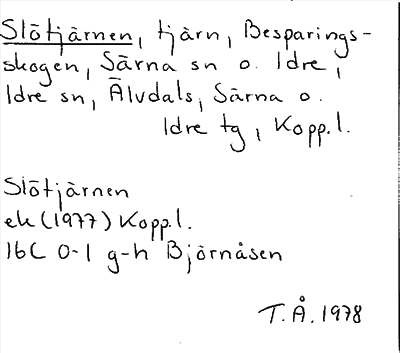 Slötjärnen, tjärn, Besparings-
skogen, Särna sn o. Idre,
Idre sn, Älvdals, Särna o.
Idre tg, Kopp.l.
Slötjärnen
ek (1977) Kopp.l.
16C 0-1 g-h Björnåsen
T.Å. 1978